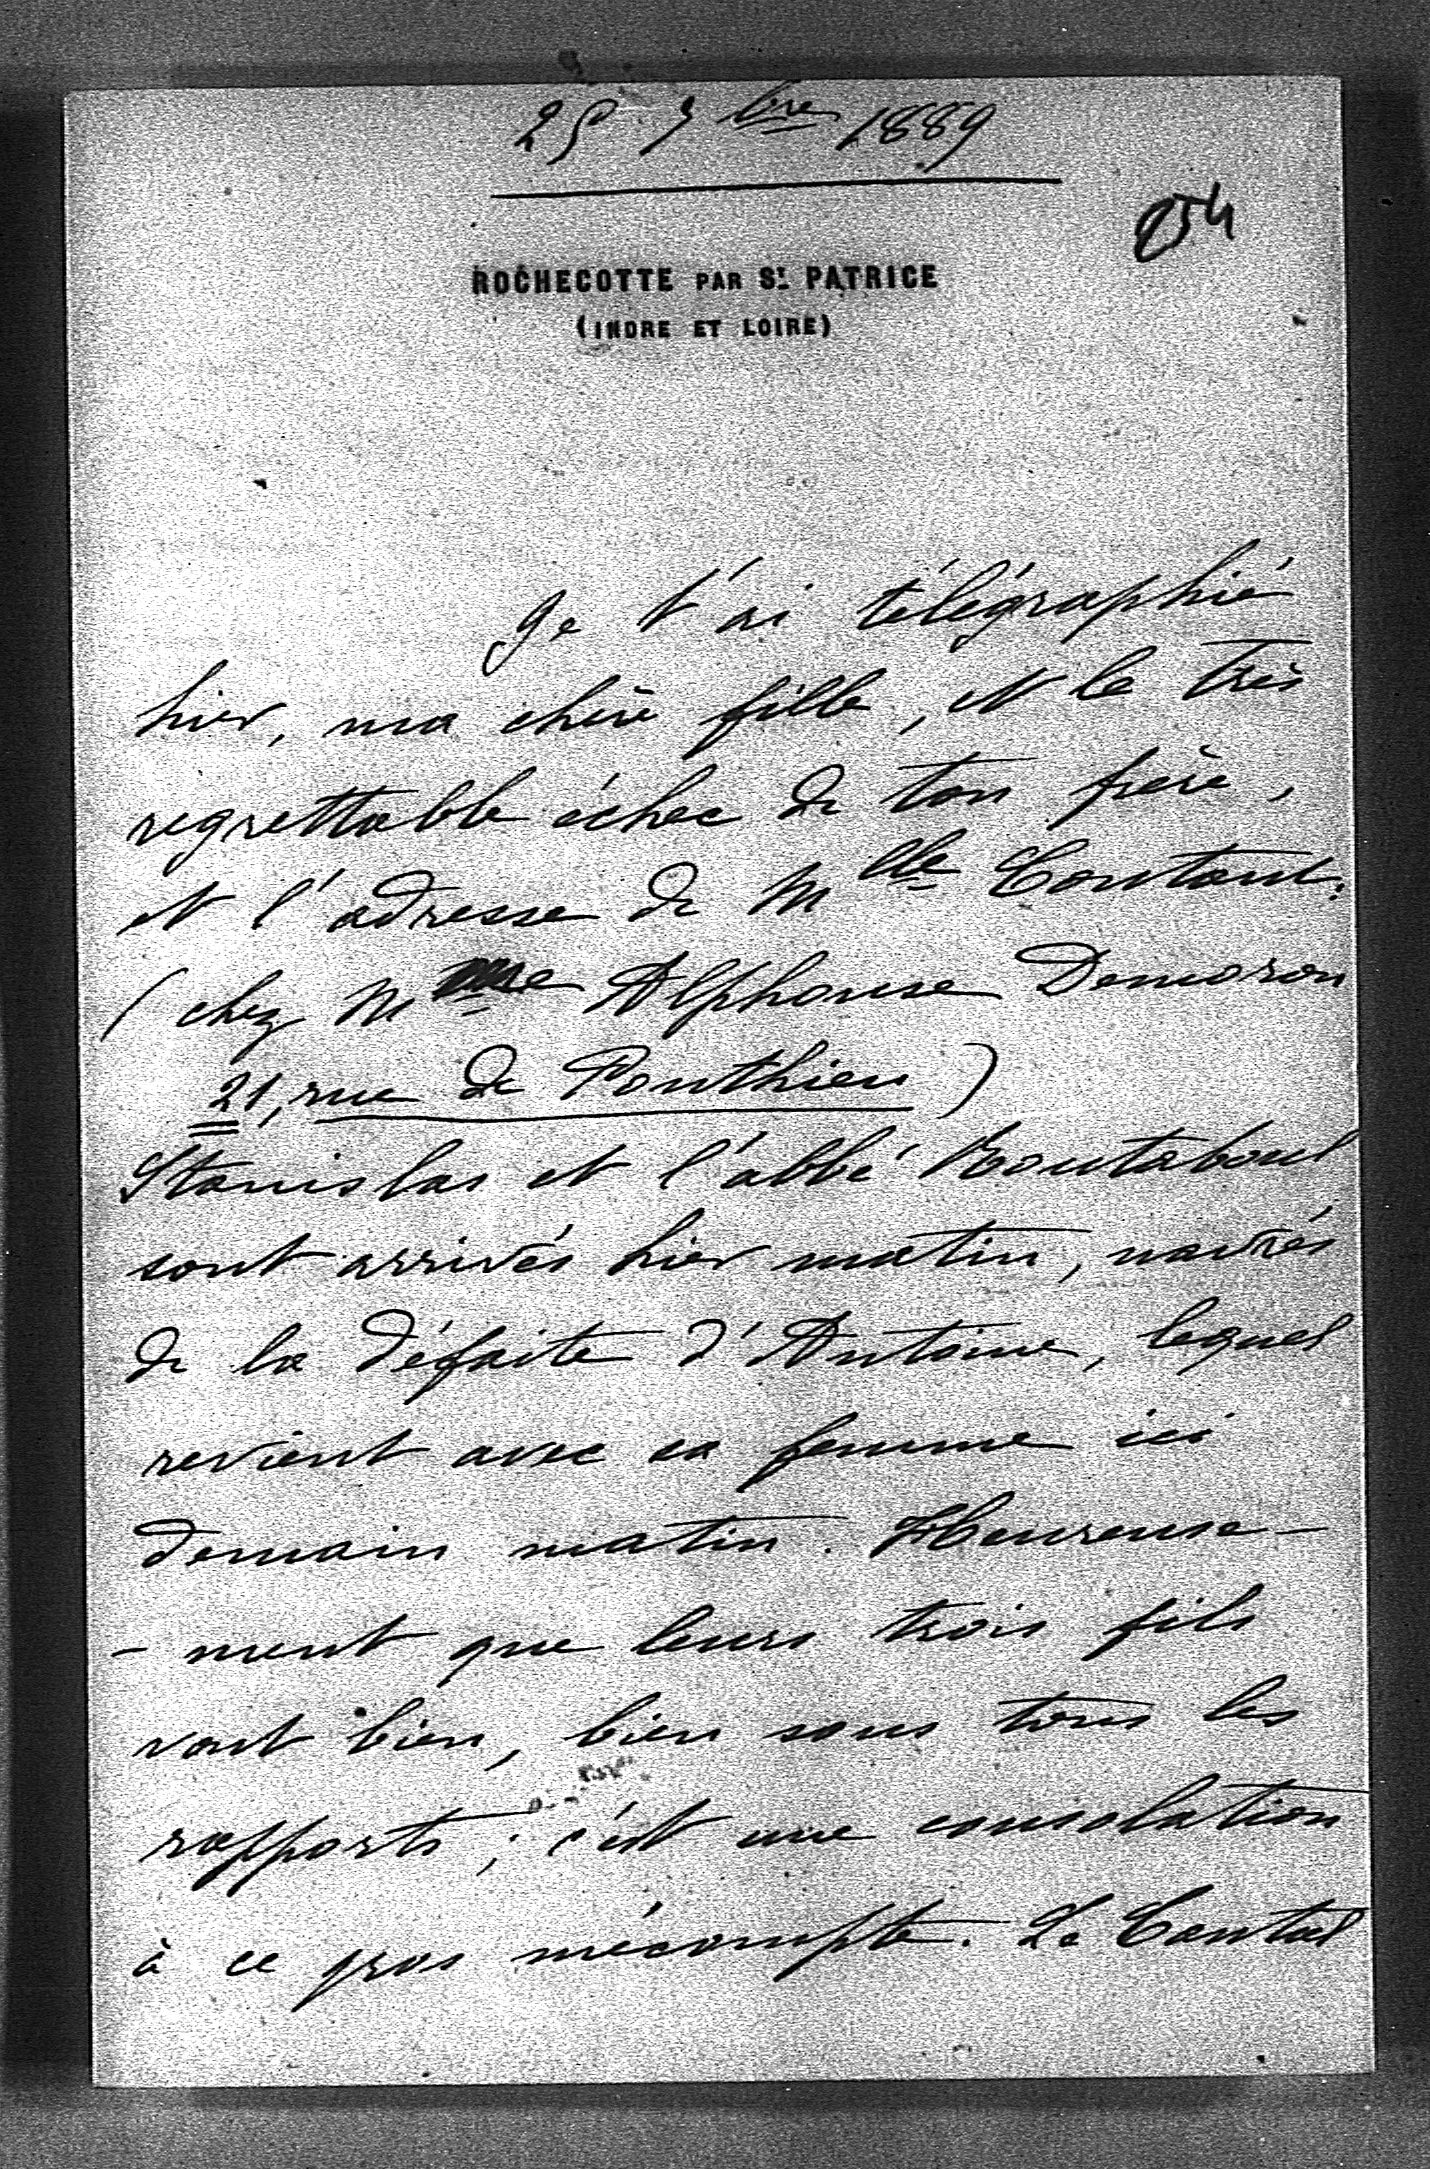 25 7bre 1889
854
ROCHECOTTE PAR ST PATRICE
(INDRE ET LOIRE)
Je t'ai télégraphié
hier, ma chère fille, et le très
regrettable échec de ton frère,
et l'adresse de Mlle Coutant.
(chez Mme Alphonse Demoron
21, rue de Ponthieu)
Stanislas et l'abbé Boutaboul
sont arrivés hier matin, navrés
de la défaite d'Antoine, lequel
revient avec sa femme ici
demain matin. Heureuse-
-ment que leurs trois fils
vont bien, bien sous tous les
rapports ; c'est une consolation
à ce gros mécompte. Le Cantal